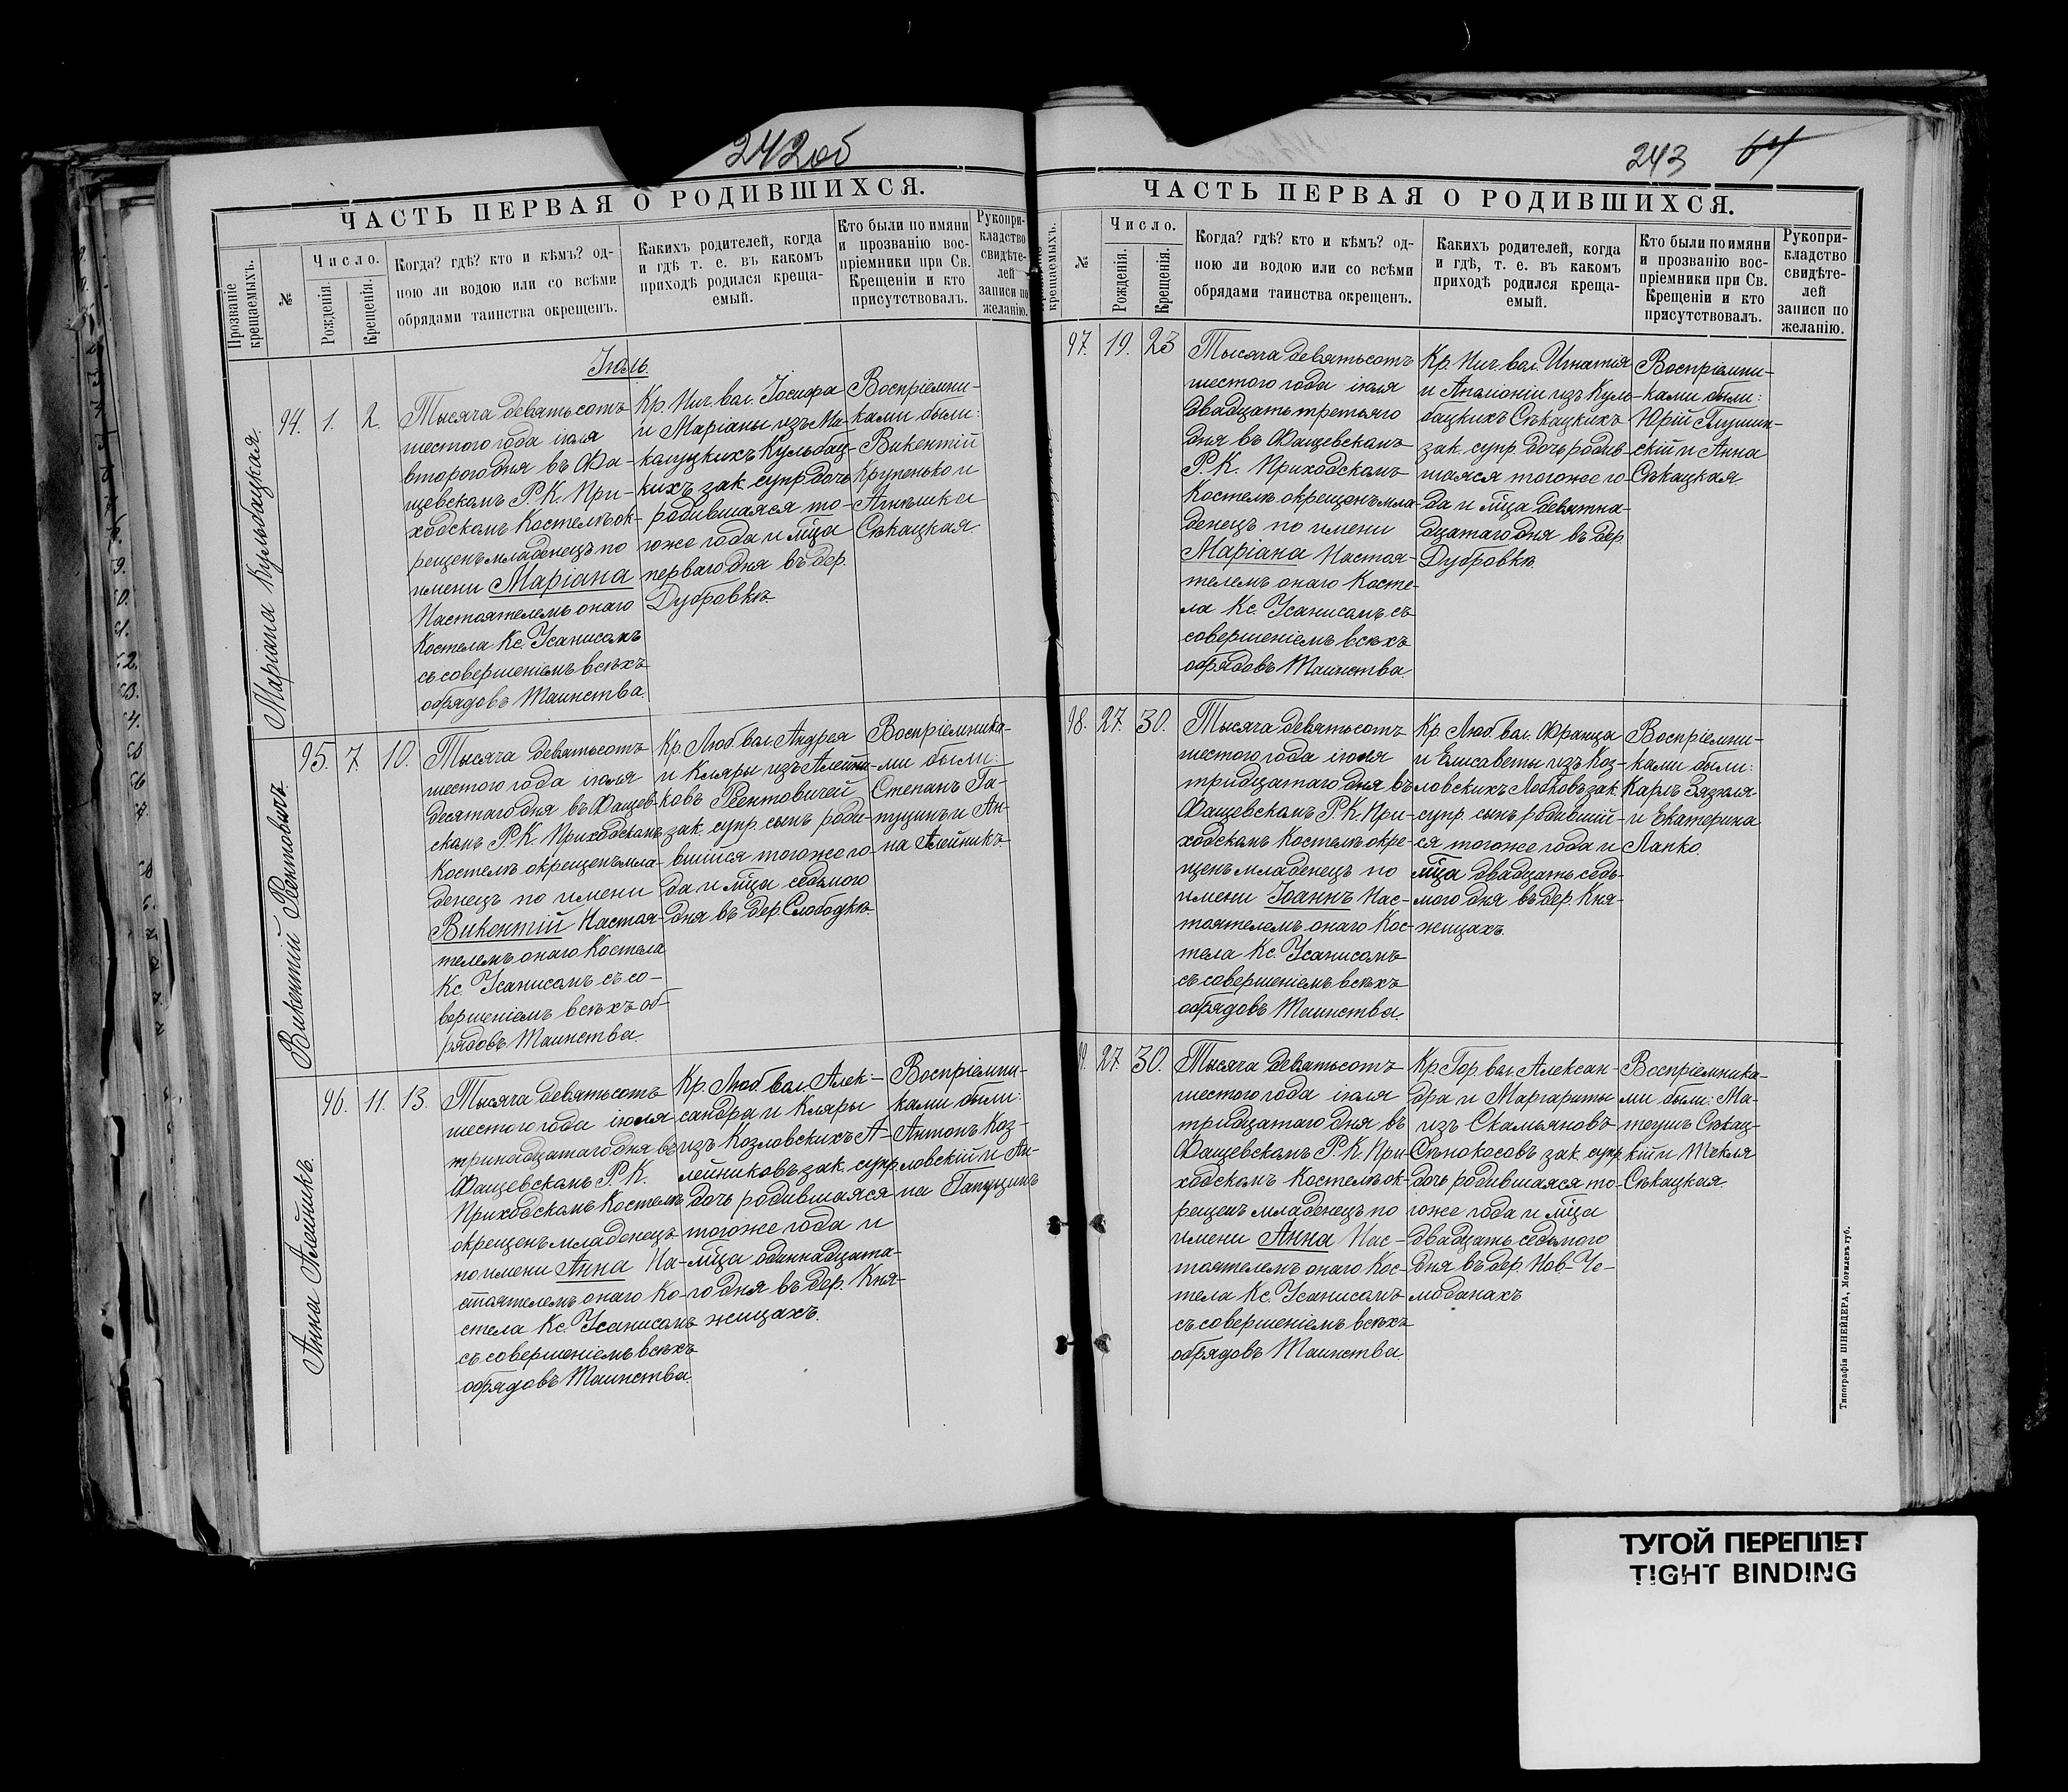 242об
ЧАСТЬ ПЕРВАЯ О РОДИВШИХСЯ.
Прозваніе крещаемыхъ.
№
Число.
Рожденія.
Крещенія.
Когда? гдѣ? кто и кѣмъ? од-
ною ли водою или со всѣми
обрядами таинства окрещенъ.
Какихъ родителей, когда
и гдѣ т. е. въ какомъ
приходѣ родился креща-
емый.
Кто были по имяни
и прозванію вос-
пріемники при Св.
Крещеніи и кто
присутствовалъ.
Рукопри-
кладство
свидѣте-
лей
записи по
желанію.
Іюль.
Маріана Кульбацкая.
94. 1. 2.
Тысяча девятьсотъ
шестого года іюля
второго дня въ Фа-
щевскомъ Р. К. При-
ходскомъ Костелѣ ок-
рещенъ младенецъ по
имени Маріана
Настоятелемъ онаго
Костела Кс. Усанисомъ
съ совершеніемъ всѣхъ
обрядовъ Таинства.
Кр. Нич. вол. Іосифа
и Маріаны изъ Ми-
калуцкихъ Кульбац-
кихъ зак. супр. дочь
родившаяся то-
гоже года и м-ца
перваго дня въ дер.
Дубровкѣ.
Воспріемни-
ками были:
Викентій
Крупенько и
Агнѣшка
Сѣкацкая.
Викентій Реентовичъ.
95. 7. 10.
Тысяча девятьсотъ
шестого года іюля
десятаго дня въ Фащев-
скомъ Р. К. Приходскомъ
Костелѣ окрещенъ мла-
денецъ по имени
Викентій Настоя-
телемъ онаго Костела
Кс. Усанисомъ съ со-
вершеніемъ всѣхъ об-
рядовъ Таинства.
Кр. Люб. вол. Андрея
и Клары изъ Алейни-
ковъ Реентовичей
зак. супр. сынъ роди-
вшійся тогоже го-
да и м-ца седьмого
дня въ дер. Слободкѣ.
Воспріемника-
ми были:
Степанъ Га-
пуцинъ и Ан-
на Алейникъ
Анна Алейникъ.
96. 11. 13.
Тысяча девятьсотъ
шестого года іюля
тринадцатаго дня въ
Фащевскомъ Р. К.
Приходскомъ Костелѣ
окрещенъ младенецъ
по имени Анна На-
стоятелемъ онаго Ко-
стела Кс. Усанисомъ
съ совершеніемъ всѣхъ
обрядовъ Таинства.
Кр. Люб. вол. Алек-
сандра и Клары
изъ Козловскихъ А-
лейниковъ зак. супр.
дочь родившаяся
тогоже года и
м-ца одиннадцата-
го дня въ дер. Кня-
жицахъ.
Воспріемни-
ками были:
Антонъ Коз-
ловскій и Ан-
на Гапуцинъ
243 64
ЧАСТЬ ПЕРВАЯ О РОДИВШИХСЯ.
крещаемыхъ.
№
Число.
Рожденія.
Крещенія.
Когда? гдѣ? кто и кѣмъ? од-
ною ли водою или со всѣми
обрядами таинства окрещенъ.
Какихъ родителей, когда
и гдѣ, т. е. въ какомъ
приходѣ родился креща-
емый.
Кто были по имяни
и прозванію вос-
пріемники при Св.
Крещеніи и кто
присутствовалъ.
Рукопри-
кладство
свидѣте-
лей
записи по
желанію.
97. 19. 23
Тысяча девятьсотъ
шестого года іюля
двадцать третьяго
дня въ Фащевскомъ
Р. К. Приходскомъ
Костелѣ окрещенъ мла-
денецъ по имени
Маріана Настоя-
телемъ онаго Косте-
ла Кс. Усанисомъ съ
совершеніемъ всѣхъ
обрядовъ Таинства.
Кр. Нич. вол. Игнатія
и Аполоніи изъ Куль-
бацкихъ Сѣкацкихъ
зак. супр. дочь родив-
шаяся тогоже го-
да и м-ца девятна-
дцатаго дня въ дер.
Дубровкѣ.
Воспріемни-
ками были:
Юрій Глушин-
скій и Анна
Сѣкацкая
98. 27. 30.
Тысяча девятьсотъ
шестого года іюля
тридцатаго дня въ
Фащевскомъ Р. К. При-
ходскомъ Костелѣ окре-
щенъ младенецъ по
имени Іоаннъ Нас-
тоятелемъ онаго Кос-
тела Кс. Усанисомъ
съ совершеніемъ всѣхъ
обрядовъ Таинства.
Кр. Люб. вол. Франца
и Елисаветы изъ Коз-
ловскихъ Лобковъ зак.
супр. сынъ родившій-
ся тогоже года и
м-ца двадцать седь-
мого дня въ дер. Кня-
жицахъ.
Воспріемни-
ками были:
Карлъ Зязюля-
и Екатерина
Лапко.
99. 27. 30.
Тысяча девятьсотъ
шестого года іюля
тридцатаго дня въ
Фащевскомъ Р. К. При-
ходскомъ Костелѣ ок-
рещенъ младенецъ по
имени Анна Нас-
тоятелемъ онаго Кос-
тела Кс. Усанисомъ
съ совершеніемъ всѣхъ
обрядовъ Таинства.
Кр. Гор. вол. Алексан-
дра и Маргариты
изъ Скамьяновъ
Сѣнокосовъ зак. супр.
дочь родившаяся то-
гоже года и м-ца
двадцать седьмого
дня въ дер. Нов-Че-
моданахъ
Воспріемника-
ми были: Ма-
теушъ Сѣкац-
кій и Текля
Сѣкацкая.
Типографія ШНЕЙДЕРА, Могилевъ губ.
ТУГОЙ ПЕРЕПЛЕТ
TIGHT BINDING